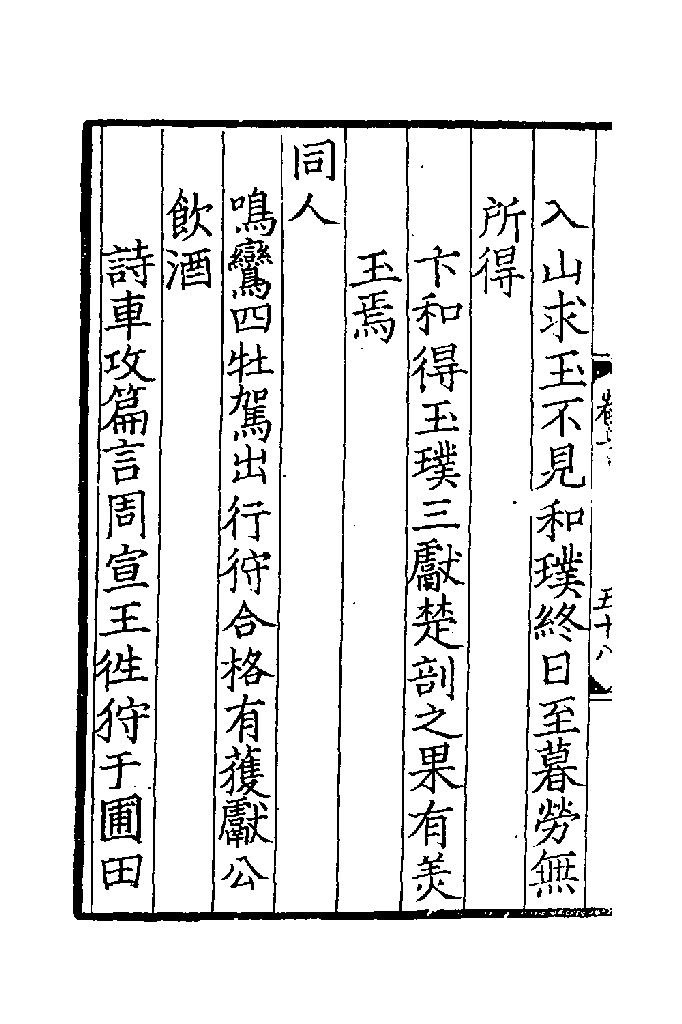 入山求玉不見和璞終日至暮勞無
所得
卞和得玉璞三獻楚剖之果有羙
玉焉
同人
鳴鸞四牡駕出行狩合格有獲獻公
飲酒
詩車攻篇言周宣王徃狩于圃田
五十八